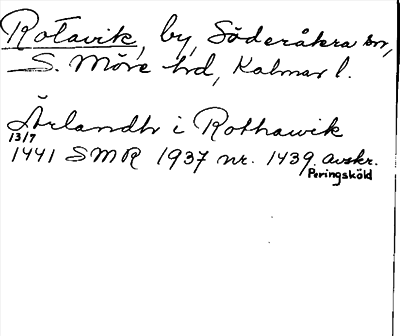 Rotavik, by, Söderåkra sn,
S. Möre hd, Kalmar l.
Ärlandh i Rothawik
13/7
1441 SMR 1937 nr. 1439. avskr.
Peringsköld